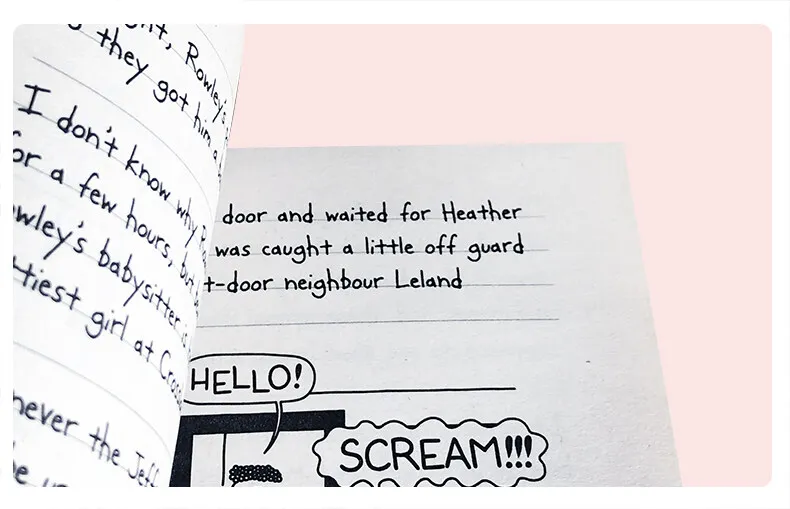 Rowley's
they got him a
I don't know why
or a few hours, but
wley's babysitter is
ttiest girl at
never the Jeff
door and waited for Heather
was caught a little off guard
t-door neighbour Leland
HELLO!
SCREAM!!!